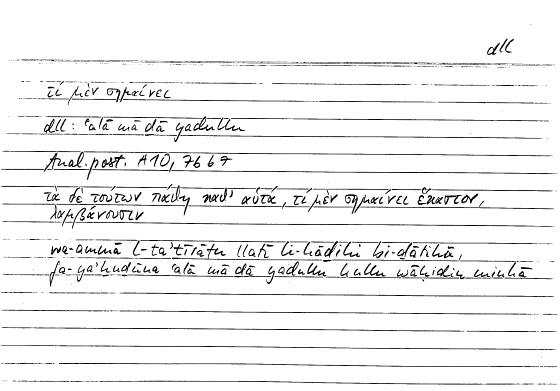 dll
τί μὲν σημαίνει
dll: ʿalā mā ḏā yadullu
Anal. post. A10, 76b7
τὰ δὲ τούτων πάθη καθ' αὑτά, τί μὲν σημαίνει ἕκαστον,
λαμβάνουσιν
wa-ammā l-taʾṯīrātu llatī li-hāḏihi bi-ḏātihā,
fa-yaʾḫuḏūna ʿalā mā ḏā yadullu kullu wāḥidin minhā